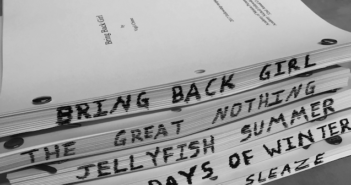 Bring Back Girl
by
BRING BACK GIRL
THE GREAT NOTHING
JELLYFISH SUMMER
DAYS OF WINTER
SLEAZE